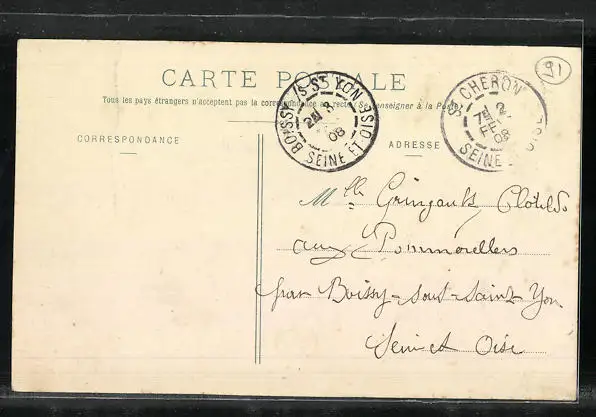 CARTE POSTALE
Tous les pays étrangers n'acceptent pas la correspondance au recto (Se renseigner à la Poste)
CORRESPONDANCE
ADRESSE
BOISSY S ST YON
8
08
SEINE ET OISE
ST CHERON
7E 2
FEV
08
SEINE ET OISE
91
Mlle Gringault Clotilde
aux Pommerellers
par Boissy-sous-Saint Yon
Seine et Oise